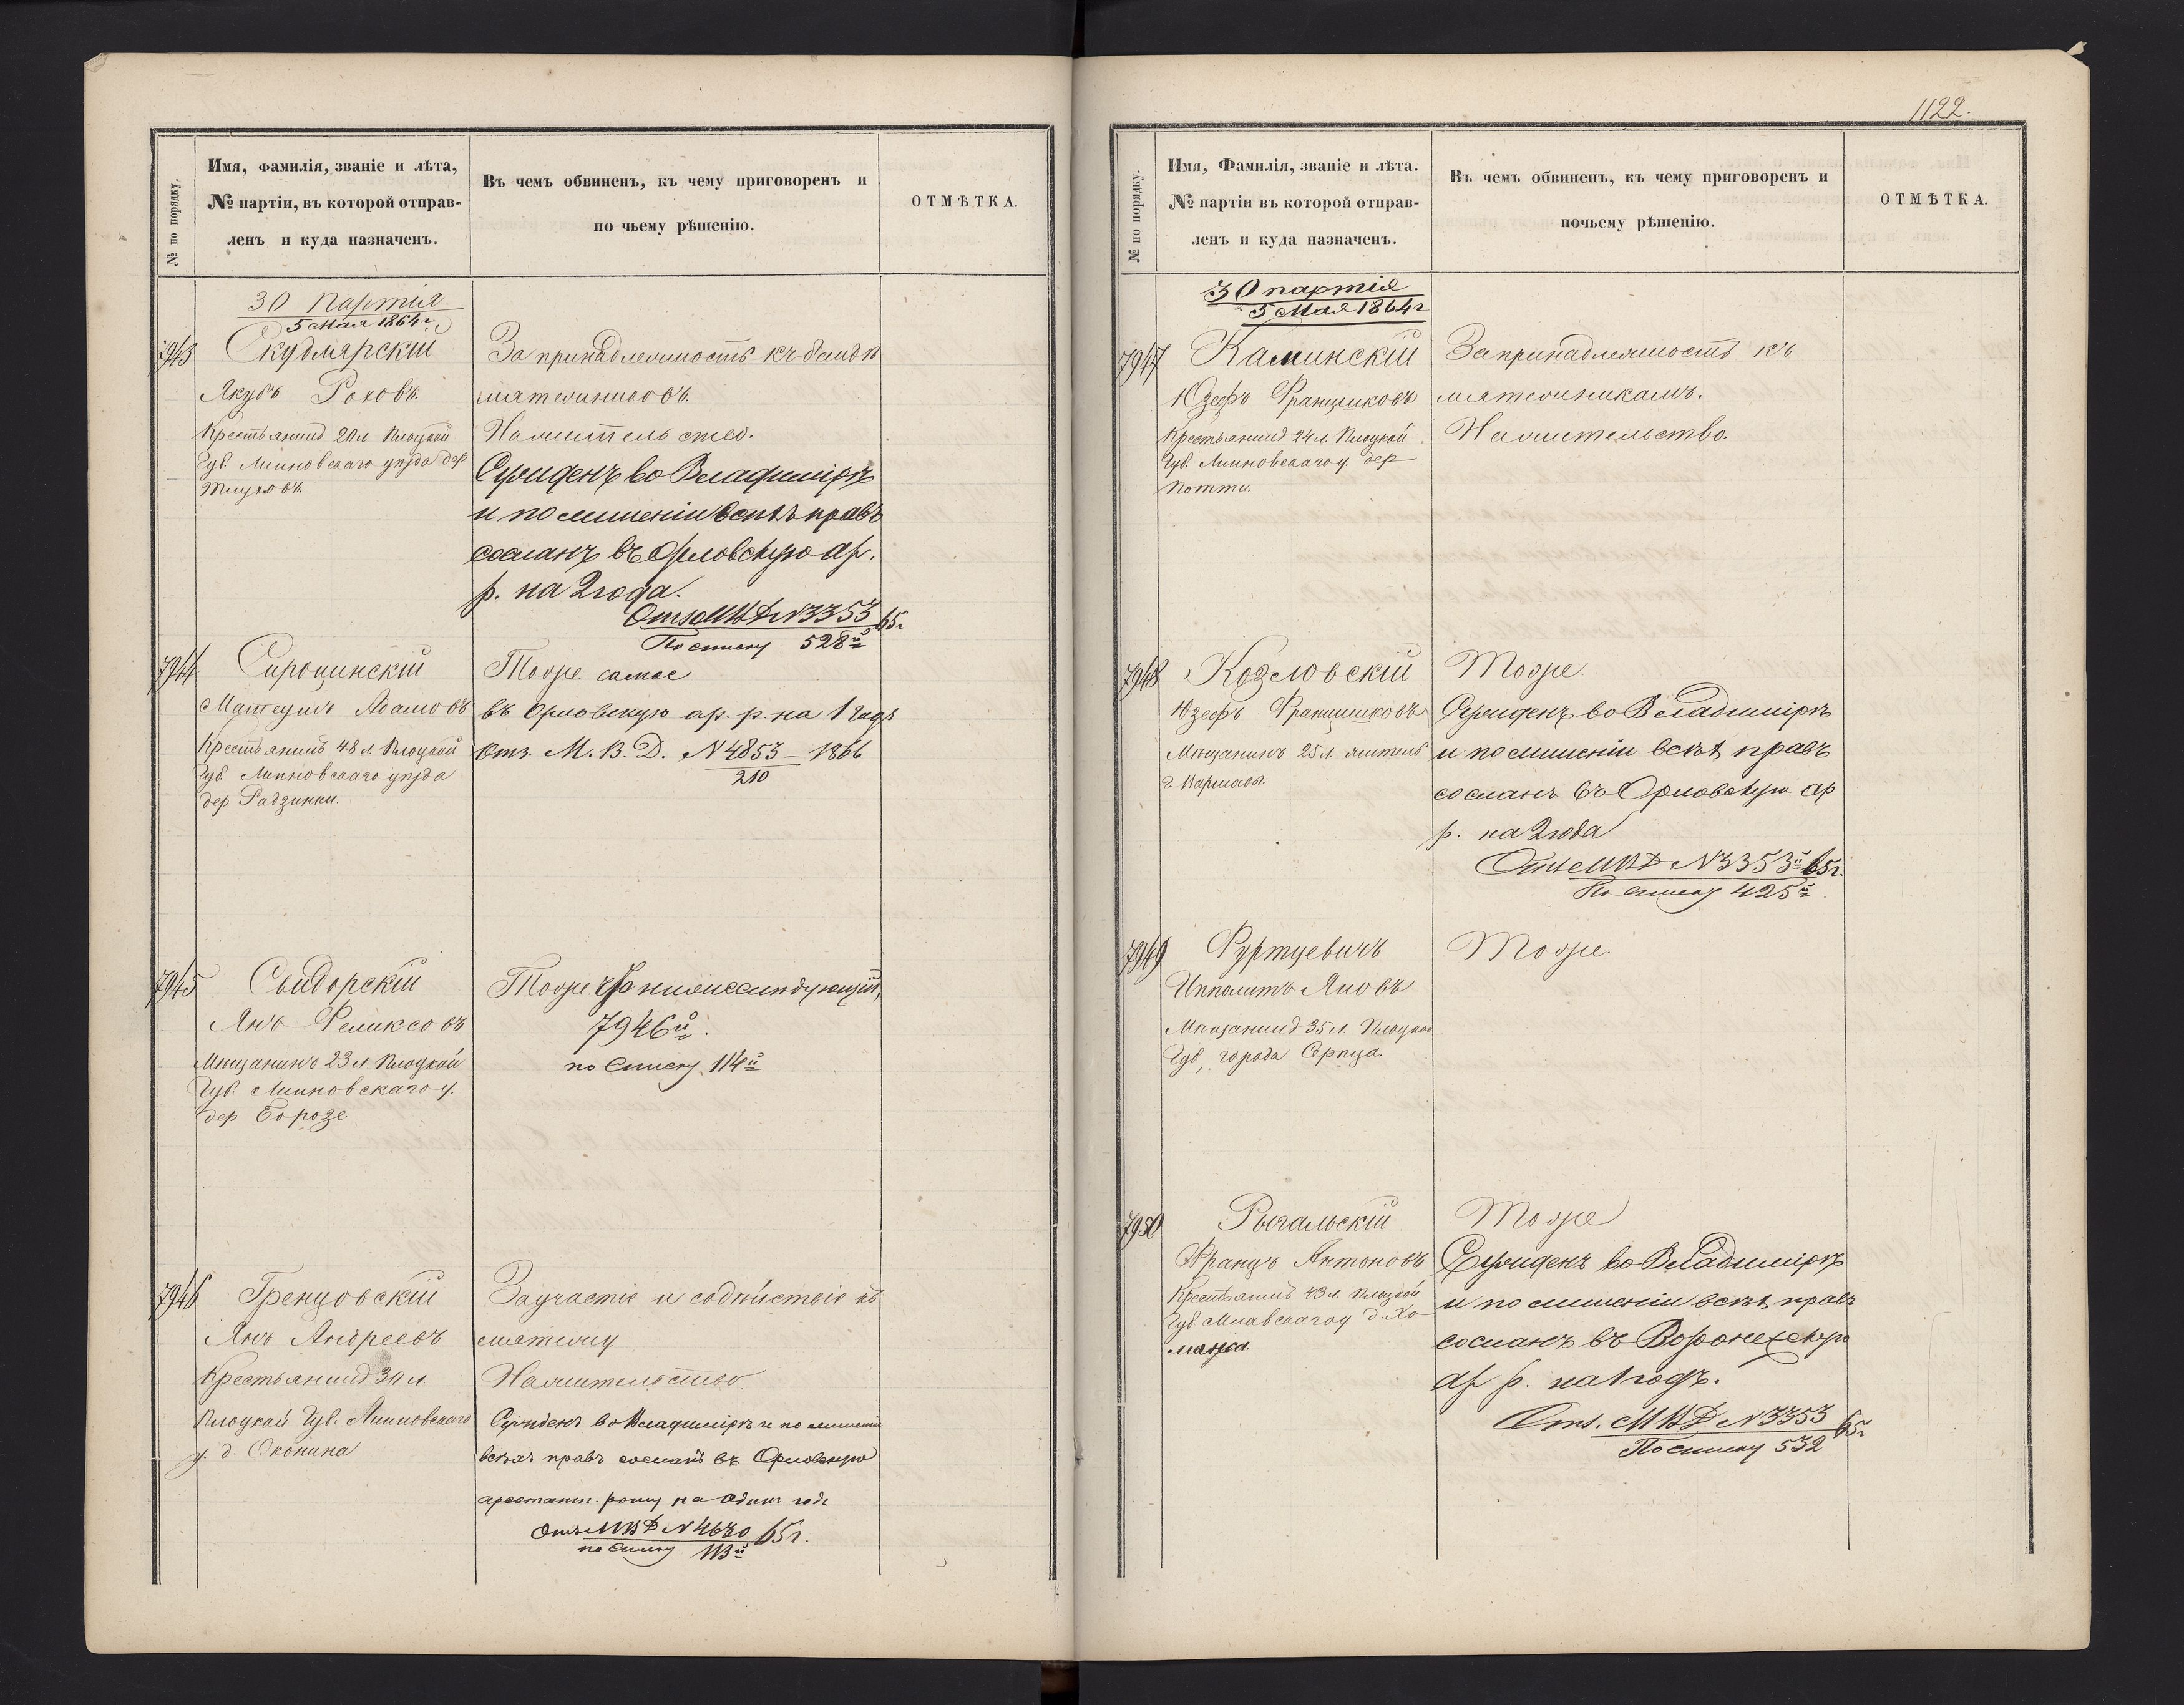 № по порядку.
Имя, Фамилія, званіе и лѣта,
№ партіи, въ которой отправ-
ленъ и куда назначенъ.
Въ чемъ обвиненъ, къ чему приговоренъ и
по чьему рѣшенію.
ОТМѢТКА.
30 Партия
5 Мая 1864 г.
7943
Скудлярскій
Якубъ Роховъ.
Крестьянинъ 20 л. Плоцкой
Губ. Липновскаго уѣзда дер
Тлуховъ.
За принадлежность къ бандѣ
мятежниковъ.
На жительство.
Сужденъ во Владимірѣ
и по лишеніи всѣхъ правъ
сосланъ въ Орловскую ар.
р. на 2 года.
Отн МВД N 3353 65 г
По списку 528й
7944
Сироцинскій
Матеушъ Адамовъ
Крестьянинъ 48 л. Плоцкой
Губ Липновскаго уѣзда
дер Радзинки.
Тоже самое
въ Орловскую ар. р. на 1 годъ
Отн. М. В. Д. N 4853 – 1866
210
7945
Свидорскій
Янъ Феликсовъ
Мѣщанинъ 23 л. Плоцкой
Губ. Липновскаго у.
дер Борозе.
Тоже. что нижеслѣдующій,
7946й.
по Списку 114й
7946
Гренцовскій
Янъ Андреевъ
Крестьянинъ 30 л.
Плоцкой Губ. Липновскаго
у. д. Сконина
За участіе и содѣйствіе къ
мятежу
На жительство
Сужденъ во Владимірѣ и по лишеніи
всѣхъ правъ сосланъ въ Орловскую
арестант. роту на Одинъ годъ
Отн МВД N 4630 65 г.
по Списку 113й
1122.
№ по порядку.
Имя, Фамилія, званіе и лѣта.
№ партіи въ которой отправ-
ленъ и куда назначенъ.
Въ чемъ обвиненъ, къ чему приговоренъ и
почьему рѣшенію.
ОТМѢТКА.
30 партія
5 Мая 1864 г
7947
Каминскій
Юзефъ Францишковъ
Крестьянинъ 24 л. Плоцкой
Губ. Липновскаго у. дер
Потты.
За принадлежность къ
мятежникамъ.
На жительство.
7948
Козловскій
Юзефъ Францишковъ
Мѣщанинъ 25 л. житель
г. Варшавы.
Тоже
Сужденъ во Владимірѣ
и по лишеніи всѣхъ правъ
сосланъ въ Орловскую ар
р. на 2 года
Отн МВД N 3353й 65 г.
По списку 425й.
7949
Фуртцевичъ
Ипполитъ Яновъ
Мѣщанинъ 35 л. Плоцкой
Губ, города Серпца.
Тоже.
7950
Рыгальскій
Францъ Антоновъ
Крестьянинъ 43 л. Плоцкой
Губ Млавскаго у д. Хо
манжа.
Тоже
Сужденъ во Владимірѣ
и по лишеніи всѣхъ правъ
сосланъ въ Воронежскую
ар р. на 1 годъ.
Отн. МВД N 3353 65 г
По списку 532